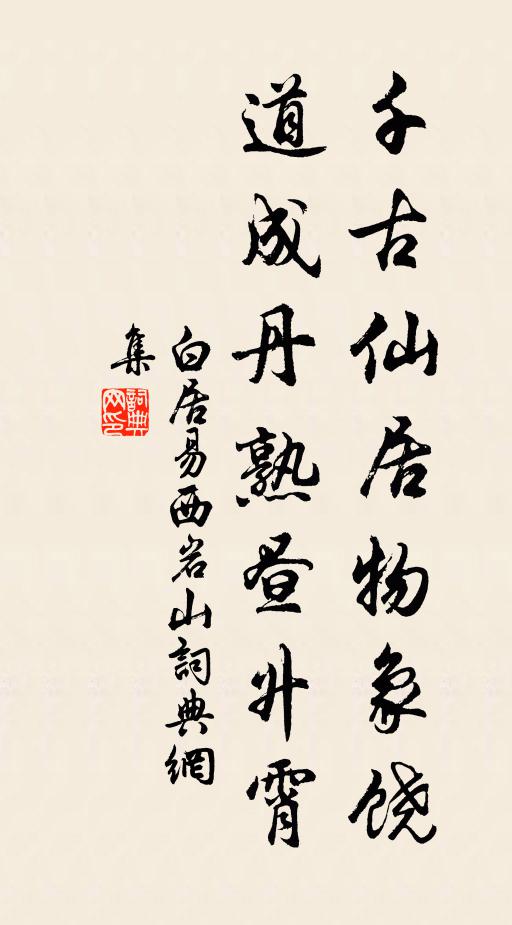 千古仙居物象饶
道成丹熟昼升霄
白居易西岩山詞典網
集
詞典
网印